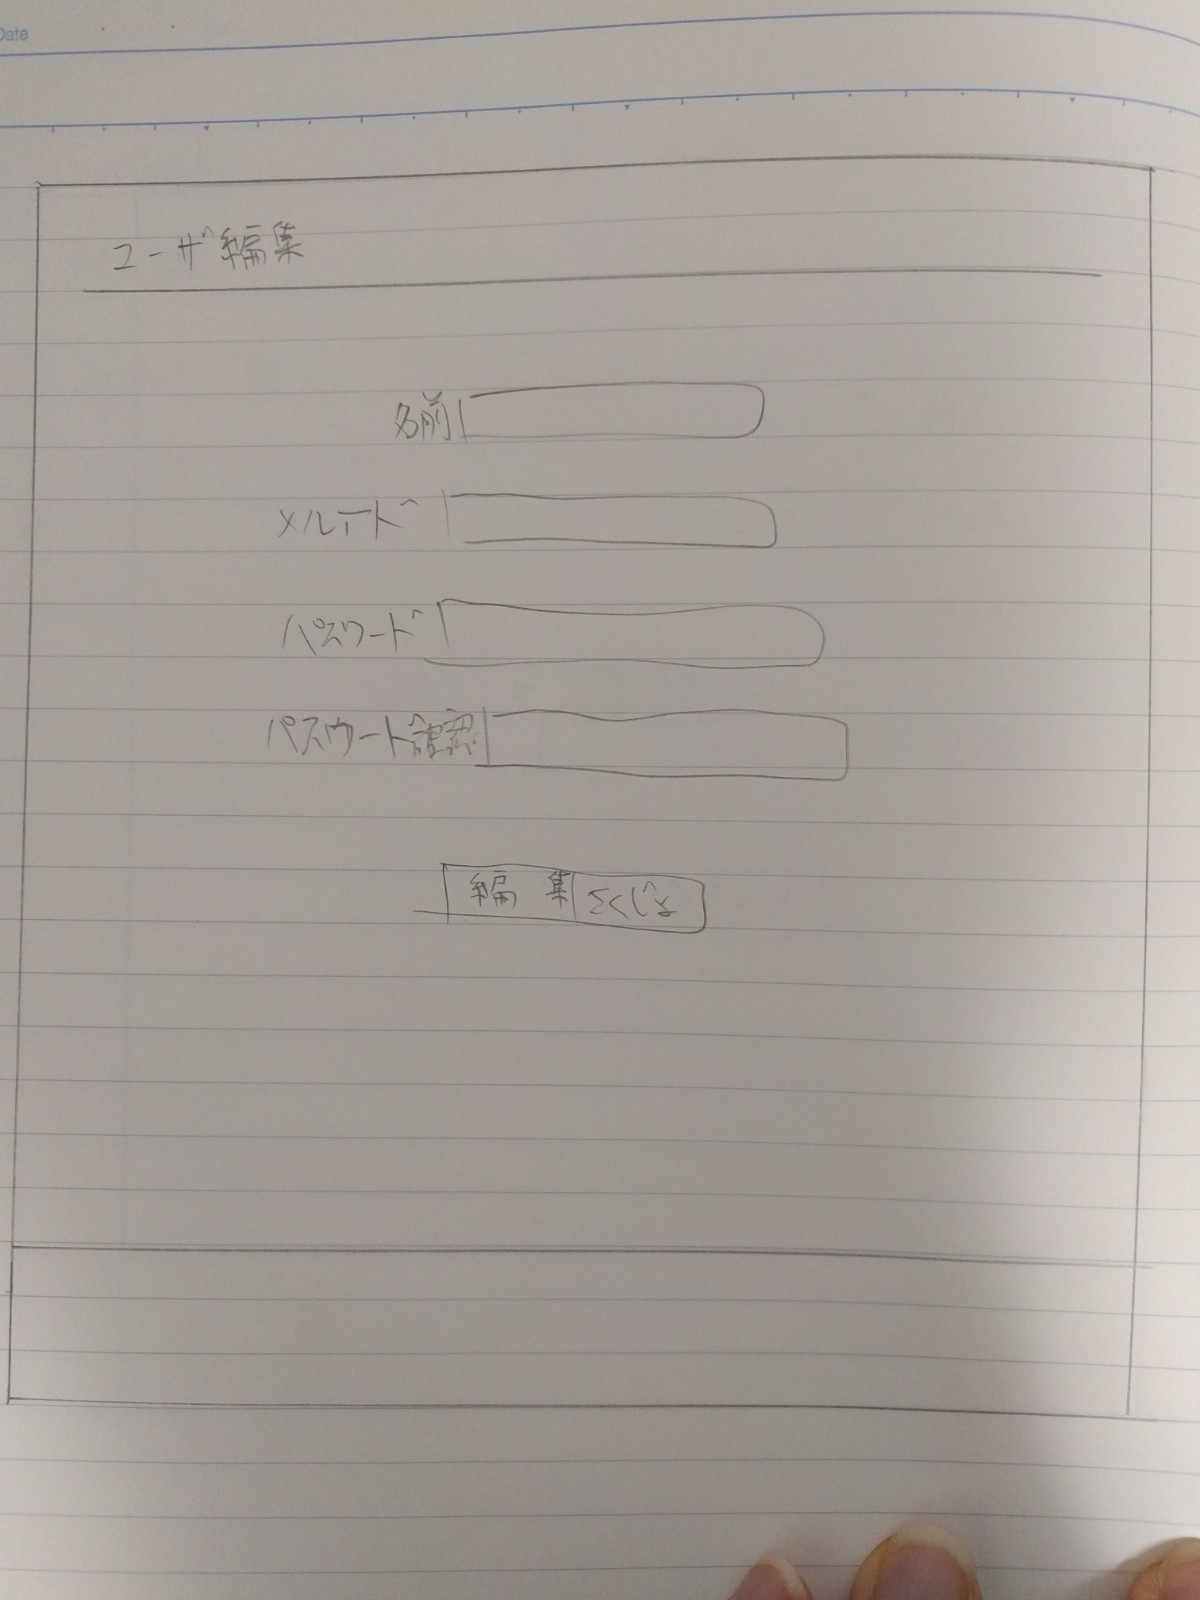 Date
ユーザ編集
名前
メルアド
パスワード
パスワード確認
編集 さくじょ